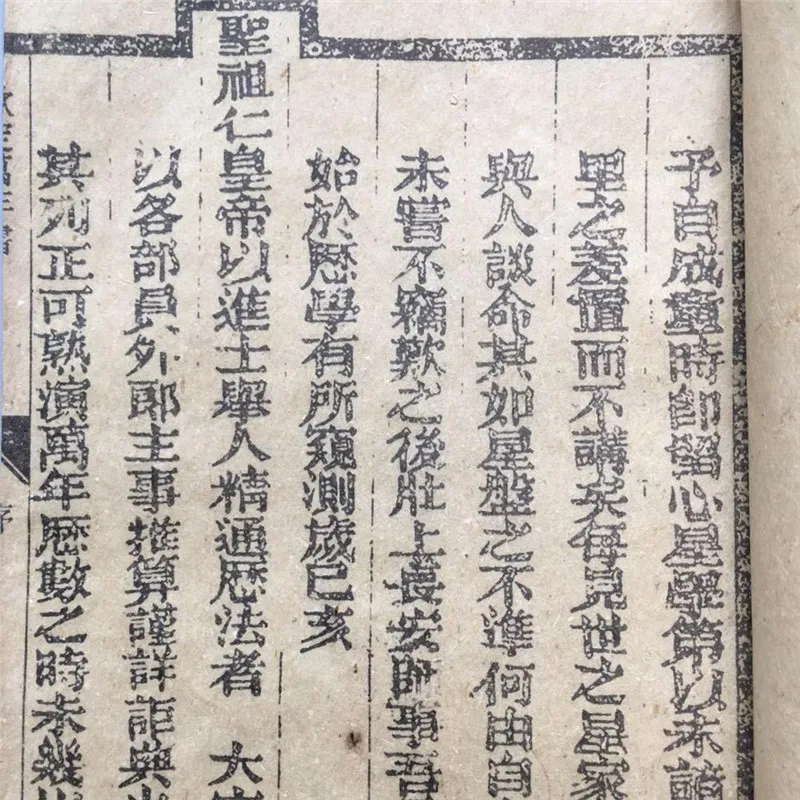 予自成童時卽留心星學第以未諳
里之差置而不講矣每見世之星家
與人談命其如星盤之不準何由自
未嘗不竊歎之後壯上長安師事吾
始於歷學有所窺測歲己亥
聖祖仁皇帝以進士舉人精通歷法者 大
以各部員外郎主事推算謹詳詎與
其列正可熟演萬年歷數之時未幾
年書
序